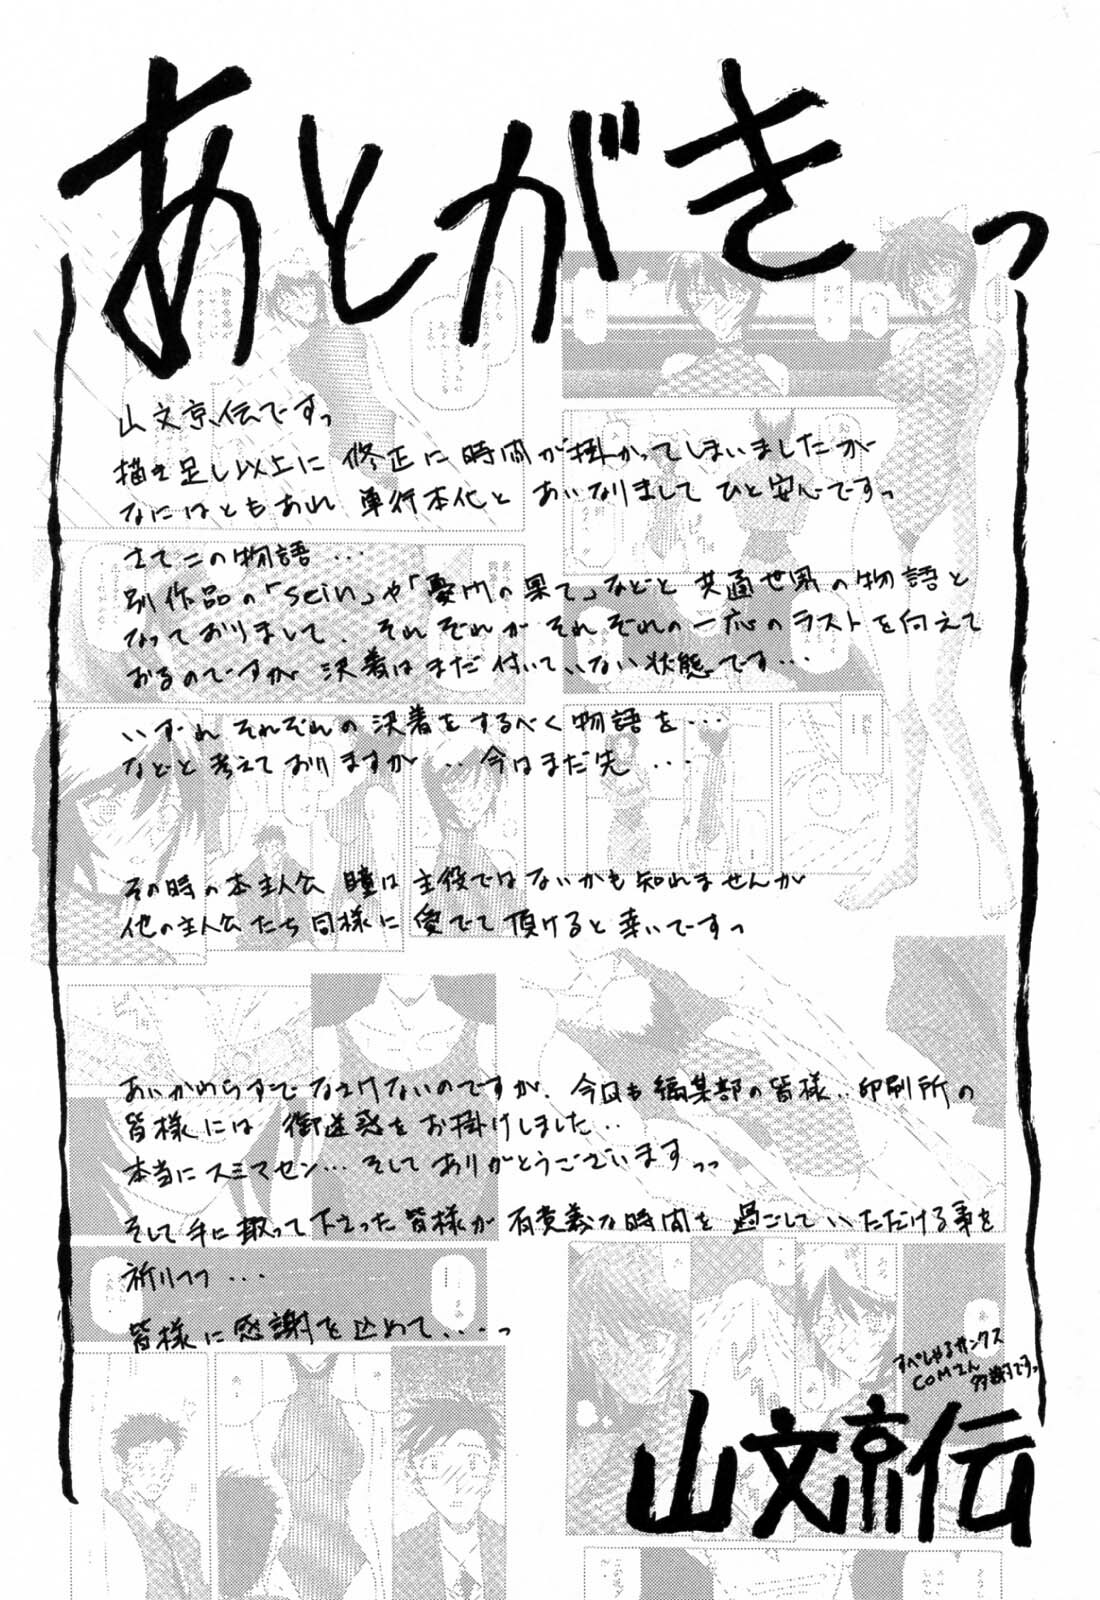 あとがきっ
山文京伝ですっ
描き足し以上に修正に時間が掛かってしまいましたが
なにはともあれ 単行本化と あいなりまして ひと安心ですっ
さてこの物語・・・
別作品の「sein」や「憂悶の果て」などと 共通世界の物語と
なっておりまして、それぞれが それぞれの一応のラストを向えて
おるのですが 決着はまだ付いていない状態です・・・
いずれ それぞれの決着をするべく物語を・・・
などと考えておりますが・・今はまだ先・・・
その時の本主人公 瞳は主役ではないかも知れませんが
他の主人公たち同様に愛でて頂けると幸いですっ
あいかわらずでなさけないのですが、今回も編集部の皆様・・印刷所の
皆様には 御迷惑をお掛けしました・・
本当にスミマセン・・・そしてありがとうございますっっ
そして手に取って下さった皆様が 有意義な時間を 過ごしていただける事を
祈りつつ・・・
皆様に感謝を込めて・・・っ
すぺしゃるサンクス
COMさん
多謝ですっ
山文京伝